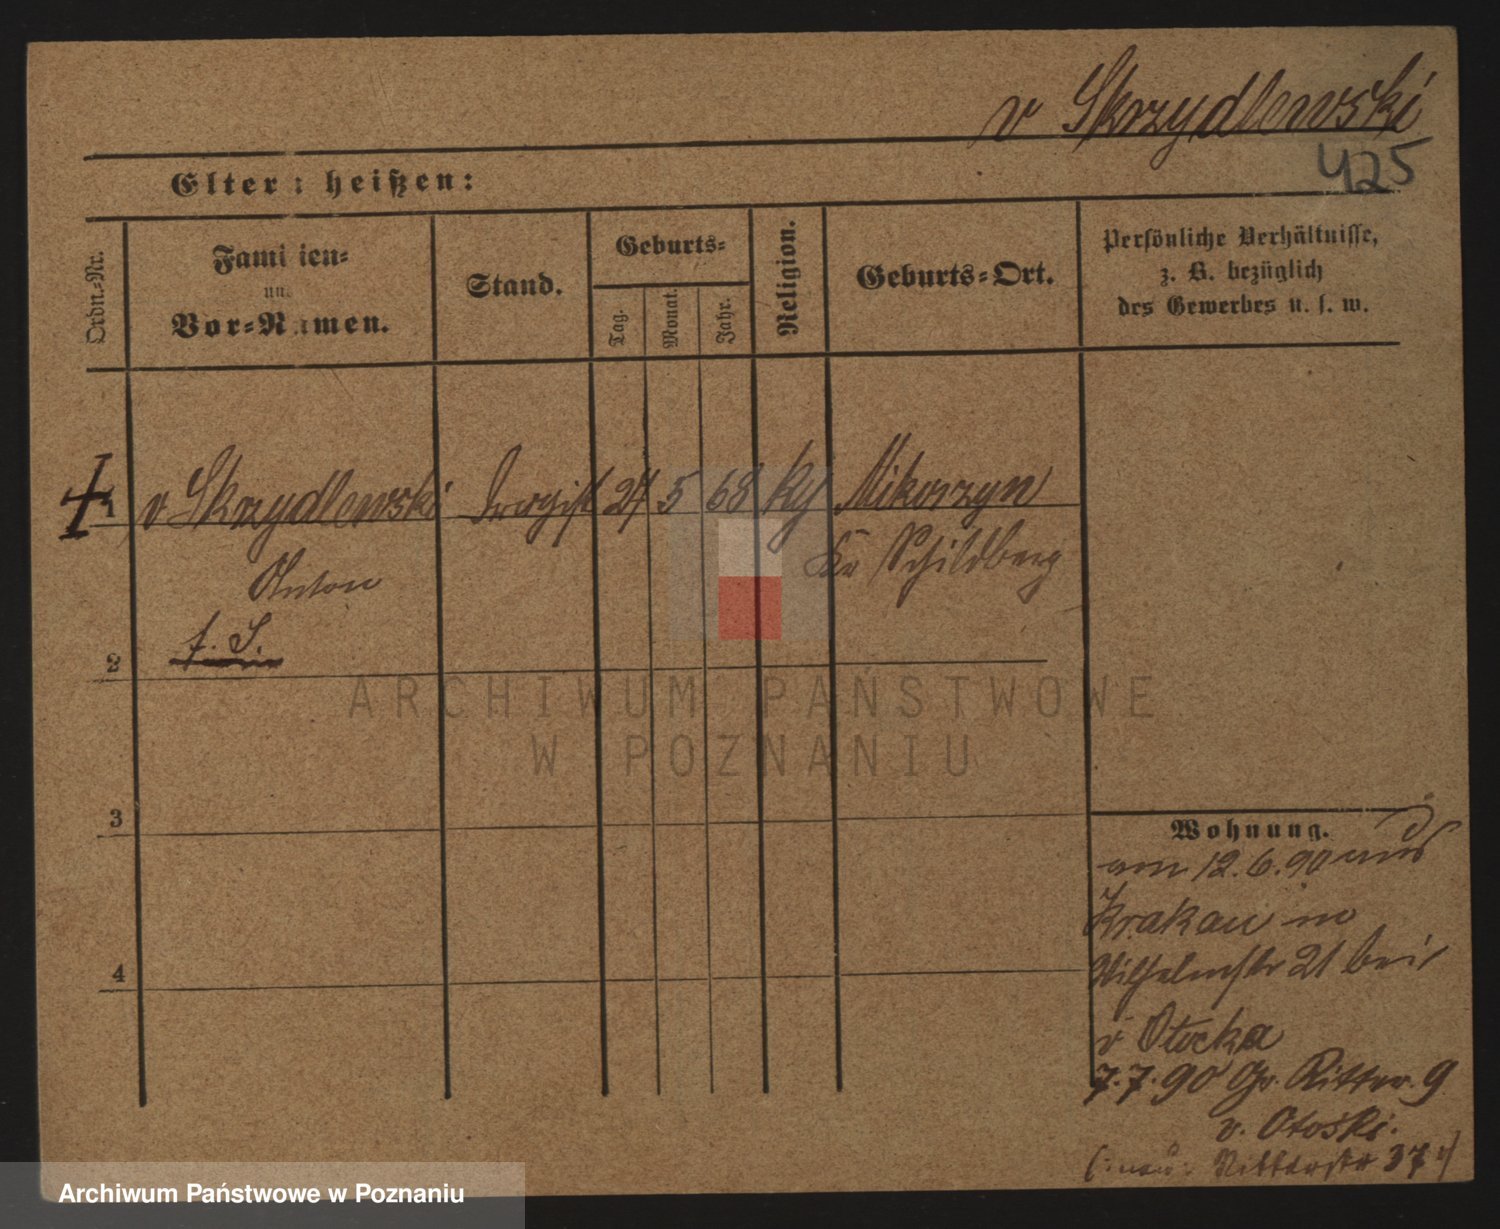 v Skrzydlewski
425
Eltern heißen:
Ordn.-Nr.
Familien-
und
Vor-Namen.
Stand.
Geburts-
Tag.
Monat.
Jahr.
Religion.
Geburts-Ort.
Persönliche Verhältnisse,
z. B. bezüglich
des Gewerbes u. s. w.
1 v Skrzydlewski Drogist 27 5 68 kg Mikorzyn
Kr Schildberg
Anton
f. S.
2
ARCHIWUM PAŃSTWOWE
W POZNANIU
3
Wohnung.
am 12.6.90 aus
Krakau
Wilhelmstr 21 bei
v Otocka
4
7.7.90 Gr. Ritter. 9
v. Otoski.
(: neu: Ritterstr 37 :)
Archiwum Państwowe w Poznaniu